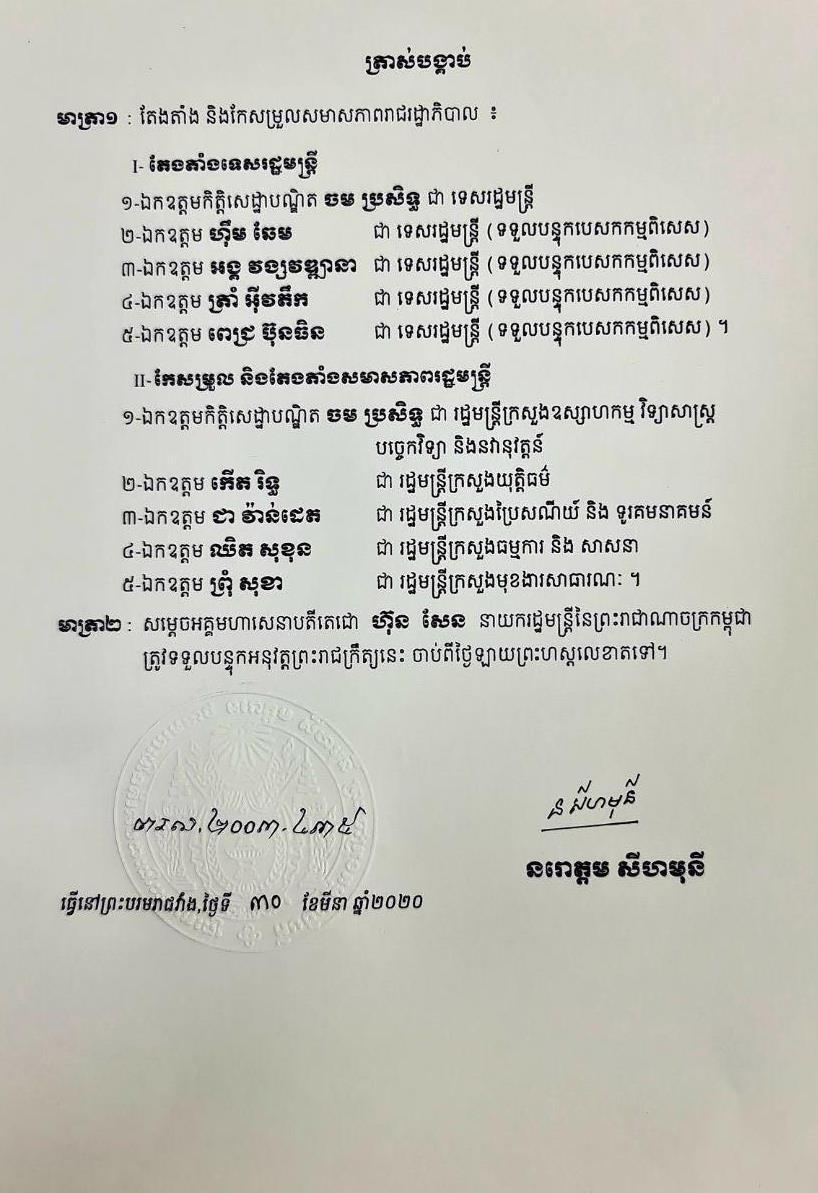 ត្រាស់បង្គាប់
មាត្រា១ : តែងតាំង និងកែសម្រួលសមាសភាពរាជរដ្ឋាភិបាល ៖
I- តែងតាំងទេសរដ្ឋមន្ត្រី
១-ឯកឧត្តមកិត្តិសេដ្ឋាបណ្ឌិត ចម ប្រសិទ្ធ ជា ទេសរដ្ឋមន្ត្រី
២-ឯកឧត្តម ហ៊ឹម ឆែម ជា ទេសរដ្ឋមន្ត្រី (ទទួលបន្ទុកបេសកកម្មពិសេស)
៣-ឯកឧត្តម អង្គ វង្សវឌ្ឍានា ជា ទេសរដ្ឋមន្ត្រី (ទទួលបន្ទុកបេសកកម្មពិសេស)
៤-ឯកឧត្តម ត្រាំ អ៊ីវតឹក ជា ទេសរដ្ឋមន្ត្រី (ទទួលបន្ទុកបេសកកម្មពិសេស)
៥-ឯកឧត្តម ពេជ្រ ប៊ុនធិន ជា ទេសរដ្ឋមន្ត្រី (ទទួលបន្ទុកបេសកកម្មពិសេស) ។
II-កែសម្រួល និងតែងតាំងសមាសភាពរដ្ឋមន្ត្រី
១-ឯកឧត្តមកិត្តិសេដ្ឋាបណ្ឌិត ចម ប្រសិទ្ធ ជា រដ្ឋមន្ត្រីក្រសួងឧស្សាហកម្ម វិទ្យាសាស្ត្រ
បច្ចេកវិទ្យា និងនវានុវត្តន៍
២-ឯកឧត្តម កើត រិទ្ធ ជា រដ្ឋមន្ត្រីក្រសួងយុត្តិធម៌
៣-ឯកឧត្តម ជា វ៉ាន់ដេត ជា រដ្ឋមន្ត្រីក្រសួងប្រៃសណីយ៍ និង ទូរគមនាគមន៍
៤-ឯកឧត្តម ឈិត សុខុន ជា រដ្ឋមន្ត្រីក្រសួងធម្មការ និង សាសនា
៥-ឯកឧត្តម ព្រុំ សុខា ជា រដ្ឋមន្ត្រីក្រសួងមុខងារសាធារណៈ ។
មាត្រា២ : សម្តេចអគ្គមហាសេនាបតីតេជោ ហ៊ុន សែន នាយករដ្ឋមន្ត្រីនៃព្រះរាជាណាចក្រកម្ពុជា
ត្រូវទទួលបន្ទុកអនុវត្តព្រះរាជក្រឹត្យនេះ ចាប់ពីថ្ងៃឡាយព្រះហស្តលេខាតទៅ។
ន សីហមុនី
ពរល.២០០៣.៤៣៥
នរោត្តម សីហមុនី
ធ្វើនៅព្រះបរមរាជវាំង,ថ្ងៃទី ៣០ ខែមីនា ឆ្នាំ២០២០